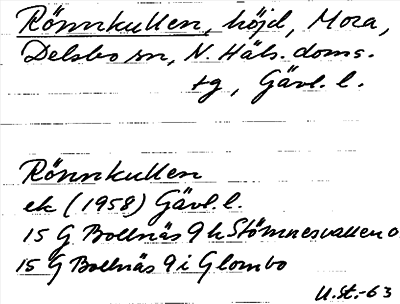 Rönnkullen, höjd, Mora,
Delsbo sn, N. Häls. doms.
tg, Gävl. l.
Rönnkullen
ek (1958) Gävl. l.
15 G Bollnäs 9 h Stömnesvallen o
15 G Bollnäs 9 i Glombo
U.St.-63